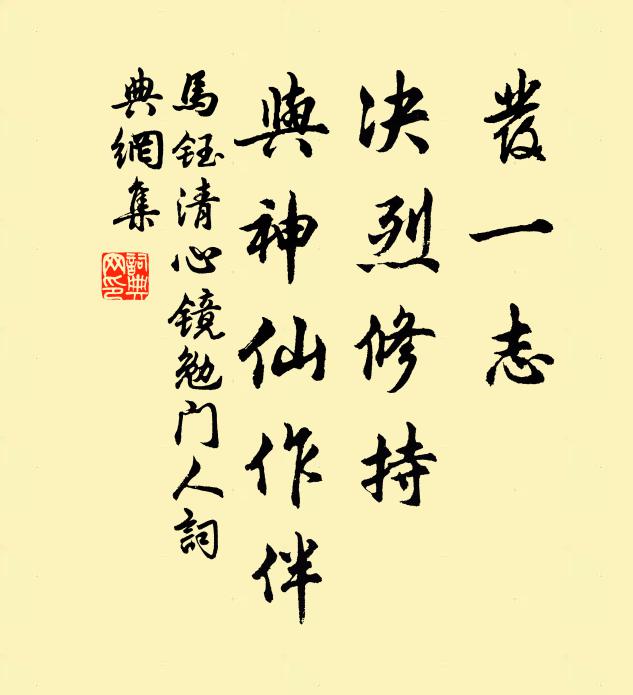 發一志
决烈修持
與神仙作伴
馬鈺清心镜勉门人詞
典網集
詞典
网印